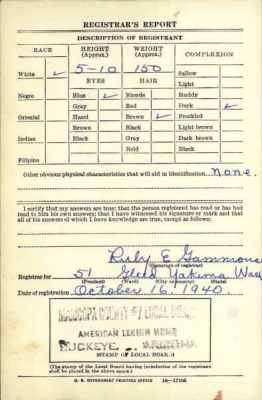 REGISTRAR'S REPORT
DESCRIPTION OF REGISTRANT
RACE HEIGHT (Approx.) WEIGHT (Approx.) COMPLEXION
White ✓ 5-10 150 Sallow
EYES HAIR Light
Negro Blue ✓ Blonde Ruddy
Gray Red Dark ✓
Oriental Hazel Brown ✓ Freckled
Brown Black Light brown
Indian Black Gray Dark brown
Bald Black
Filipino
Other obvious physical characteristics that will aid in identification None.
I certify that my answers are true; that the person registered has read or has had
read to him his own answers; that I have witnessed his signature or mark and that
all of his answers of which I have knowledge are true, except as follows:
E. Gammons
(Signature of registrar)
Registrar for 51 Gleed Yakima Wash
(Precinct) (Ward) (City or county) (State)
Date of registration October 16, 1940.
MARICOPA COUNTY #7 LOCAL BOARD
AMERICAN LEGION HOME
BUCKEYE, ARIZONA
(STAMP OF LOCAL BOARD)
(The stamp of the Local Board having jurisdiction of the registrant
shall be placed in the above space.)
U. S. GOVERNMENT PRINTING OFFICE